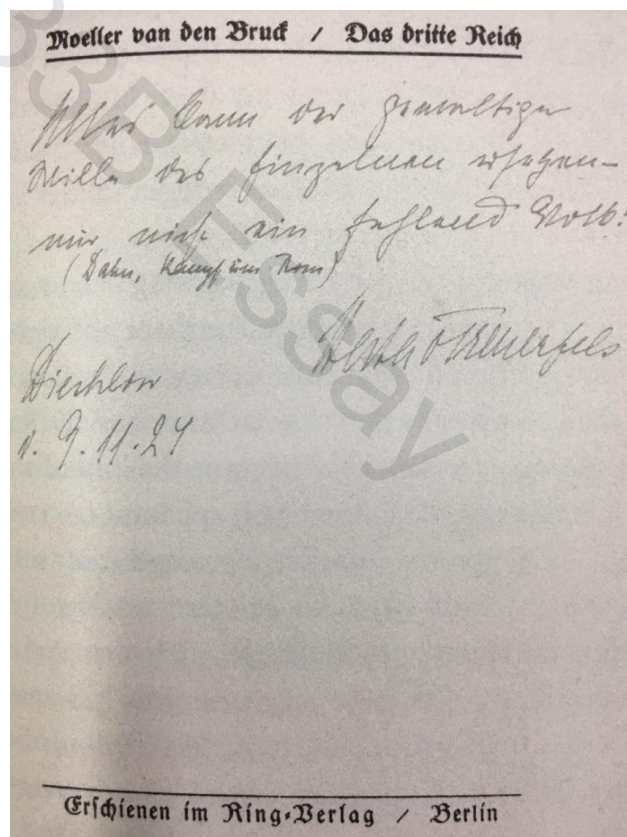 Moeller van den Bruck / Das dritte Reich
Alles kann der gewaltige
Wille des Einzelnen ersetzen –
nur nicht ein fehlend Volk!
(Dahn, Kampf um Rom)
v. 9.11.24
Erschienen im Ring-Verlag / Berlin
33B Essay